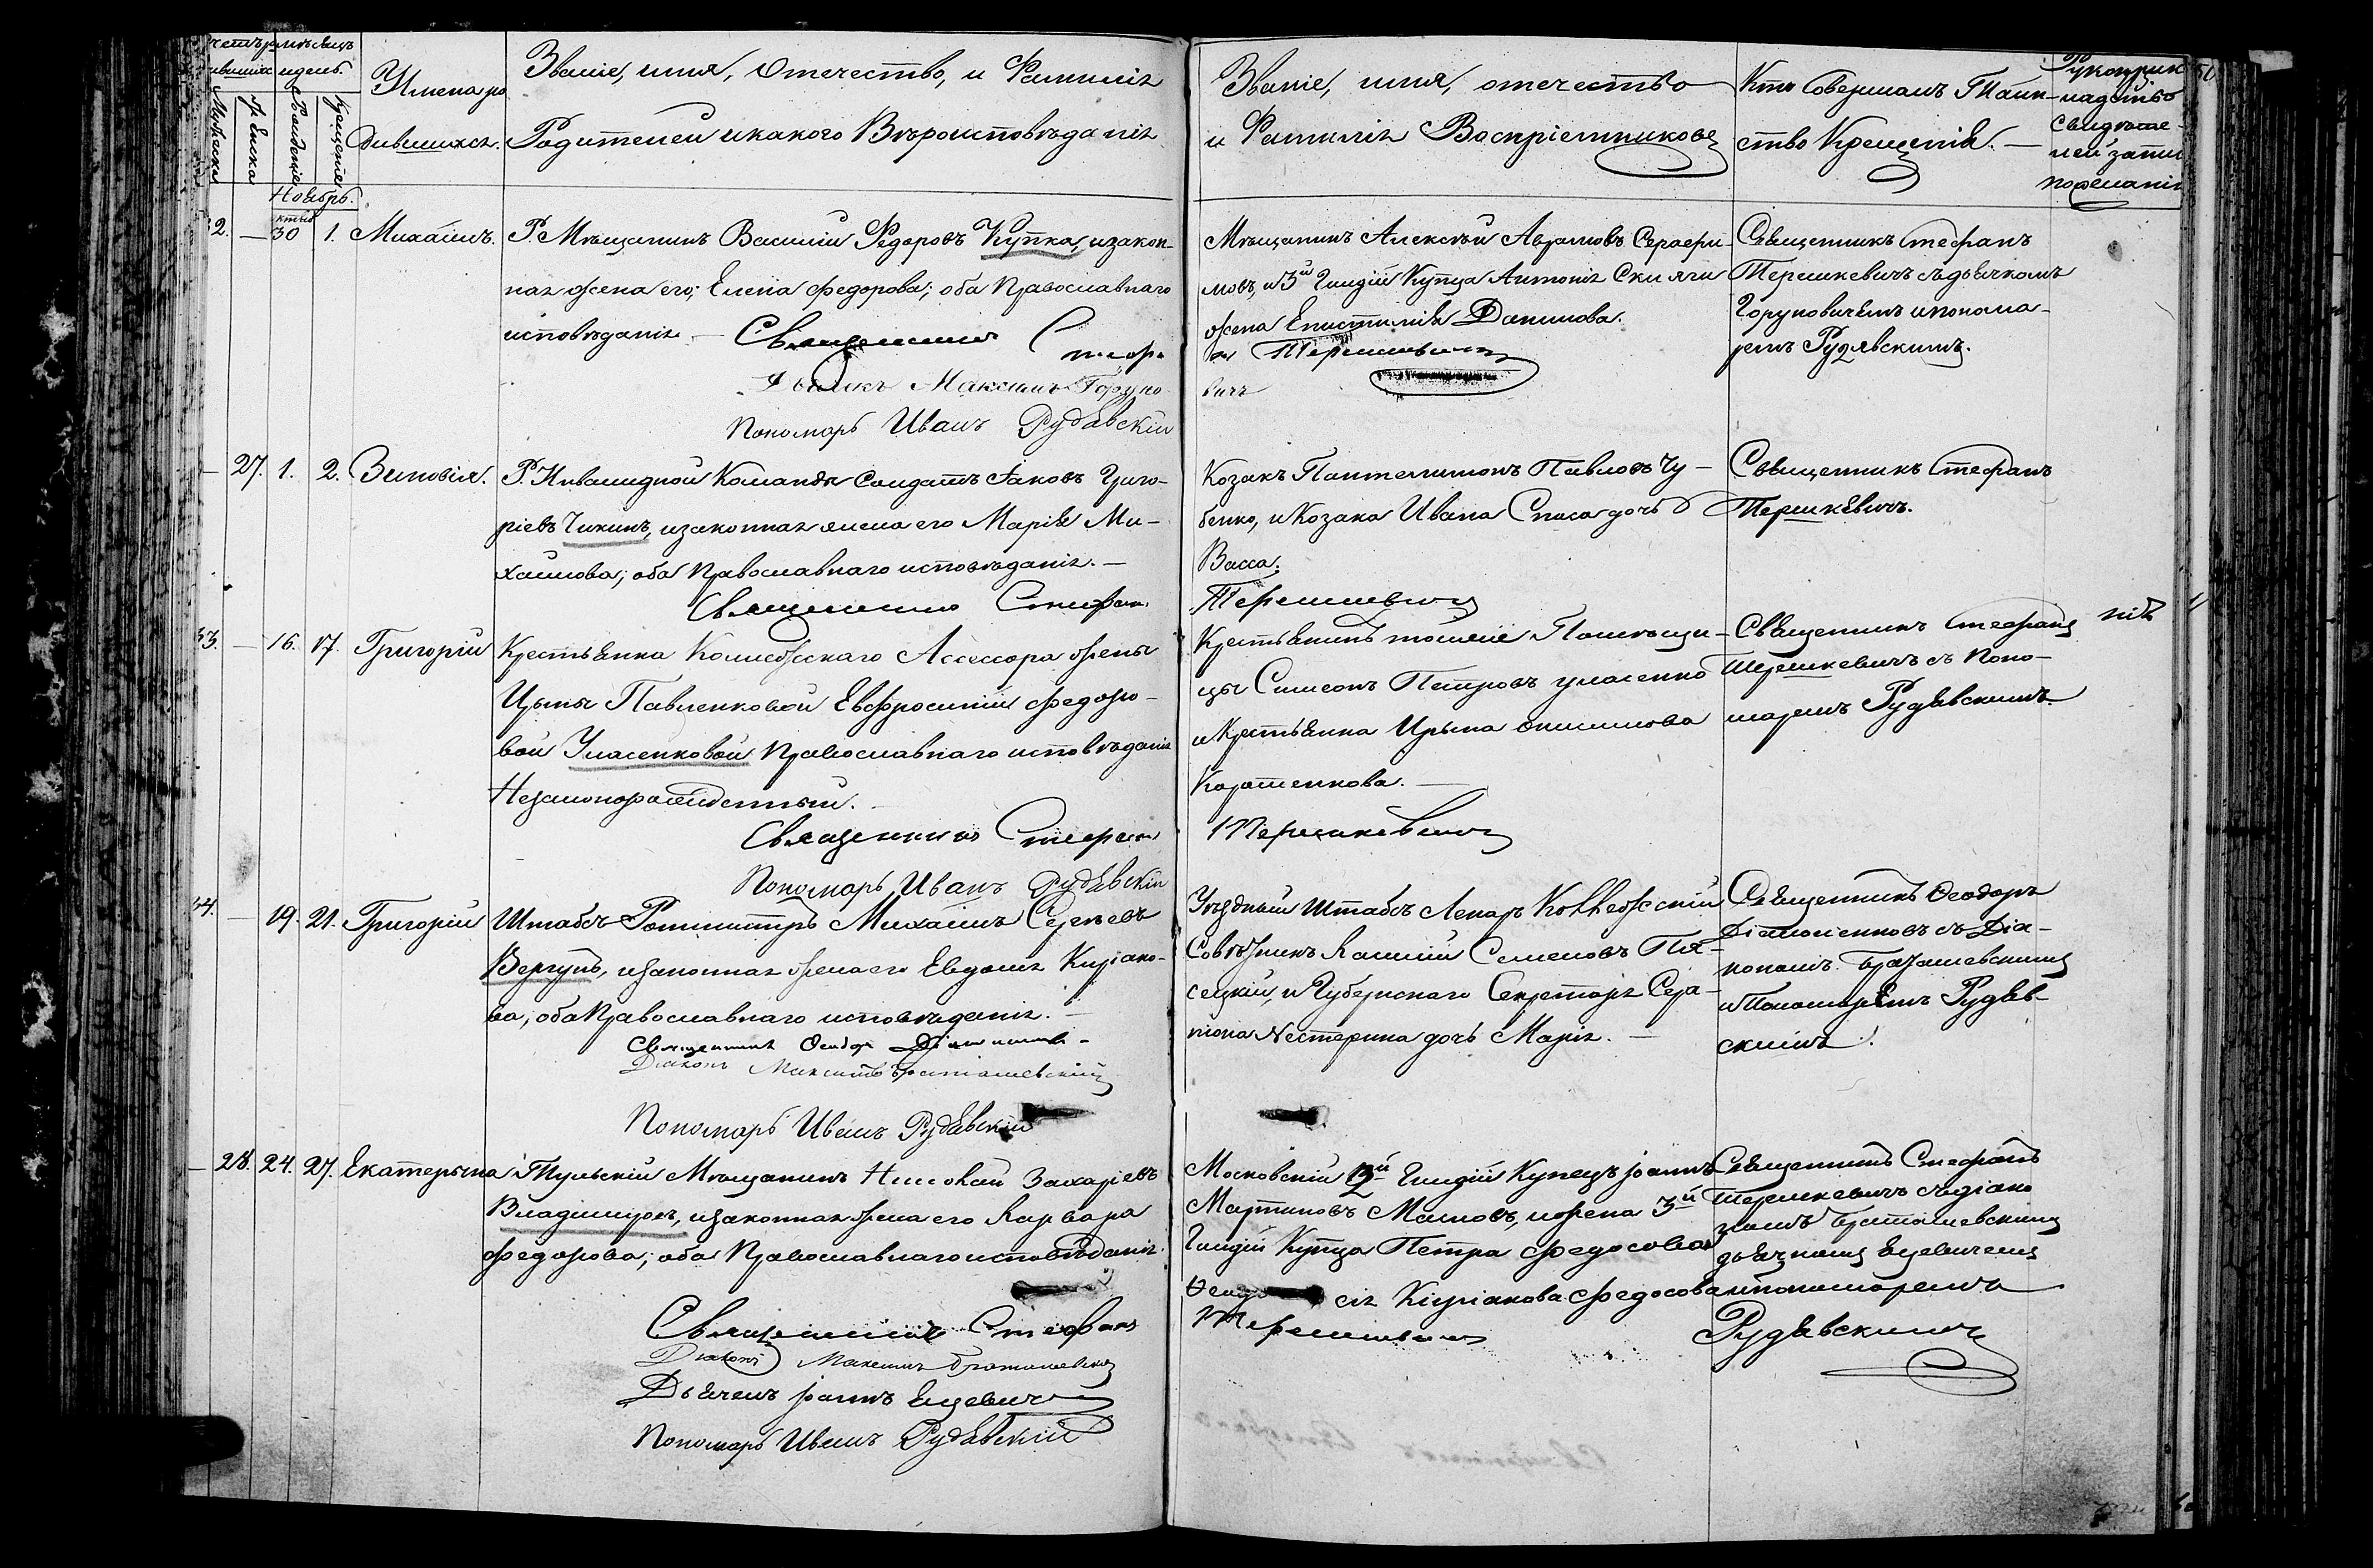 Счетъ родившихся
Мѣсяцъ и день.
Мужеска
Женска
Рожденіе
Крещеніе
Имена ро
дившихся.
Званіе, имя, Отечество, и Фамилія
Родителей и какого Вѣроисповѣданія
Званіе, имя, отечество
и Фамилія Воспріемниковъ
Кто Совершалъ Таин-
ство Крещенія. —
Рукоприк
ладство
свидѣте-
лей запи
по желанію
Ноябрь.
32. — 30 1. Михаилъ.
Р. Мѣщанинъ Василий Федоровъ Купка, и закон-
ная жена его; Елена Федорова; оба Православнаго
исповѣданія. — Священникъ Стеф
Дьячекъ Максимъ Горуно
Пономарь Иванъ Рудявскій
Мѣщанинъ Алексѣй Аврамовъ Серафи-
мовъ, и 3й Гилдіи Купца Антонія
жена Епистимія Данилова.
Терешкевичъ
вичъ
Священникъ Стефанъ
Терешкевичъ съ дьячкомъ
Горуновичемъ и понома-
ремъ Рудявскимъ.
— 27. 1. 2. Зиновія.
Р. Инвалидной Команды Солдатъ Іаковъ Григо-
ріевъ Чикинъ, и законная жена его Марія Ми-
хайлова; оба Православнаго исповѣданія. —
Священникъ Стефанъ
Козакъ Пантелимонъ Павловъ Чу-
бенко, и Козака Ивана Спаса дочь
Васса.
Терешкевичъ
Священникъ Стефанъ
Терешкевичъ.
33. — 16. 17. Григорій
Крестьянка Колежскаго Ассесора жены
Ирины Павленковой Евфросиніи Федоро-
вой Уласенковой Православнаго исповѣданія
Незаконорожденный.
Священникъ Стефанъ
Пономарь Иванъ Рудявскій
Крестьянинъ тойже Помѣщи-
цы Симеонъ Петровъ Уласенко
и Крестьянка Ирина Онисимова
Терешкевичъ
Священникъ Стефанъ
Терешкевичъ съ Поно-
маремъ Рудявскимъ.
34. — 19. 21. Григорій
Штабсъ-Ротмистръ Михаилъ Сергѣевъ
Вергунъ, и законная жена его Евдокія Киріако-
ва; оба Православнаго исповѣданія. —
Священникъ Ѳеодоръ
Діаконъ Максимъ Браташевскій
Пономарь Иванъ Рудявскій
Уѣздный Штабсъ Лекарь Коллежскій
Совѣтникъ Василій Семеновъ Пя-
сецкій, и Губернскаго Секретаря Сера-
піона Нестерина дочь Марія. —
Священникъ Ѳеодоръ
съ Діа-
кономъ Браташевскимъ
и Пономаремъ Рудяв-
скимъ.
— 28. 24. 27. Екатерина
Тульскій Мѣщанинъ Николай Захаріевъ
Владиміровъ, и законная жена его Варвара
Федорова; оба Православнаго исповѣданія.
Священникъ Стефанъ
Діаконъ Максимъ Браташевскій
Дьячекъ Іоаннъ Ецевичъ
Пономарь Иванъ Рудявскій
Московскій 2й Гилдіи Купецъ Іоаннъ
Мартиновъ Масловъ, и жена 3й
Гилдіи Купца Петра Федосова
сія Кіріакова Федосова
Терешкевичъ
Священникъ Стефанъ
Терешкевичъ съ діако
номъ Браташевскимъ
дьячкомъ Ецевичемъ
и пономаремъ
Рудявскимъ